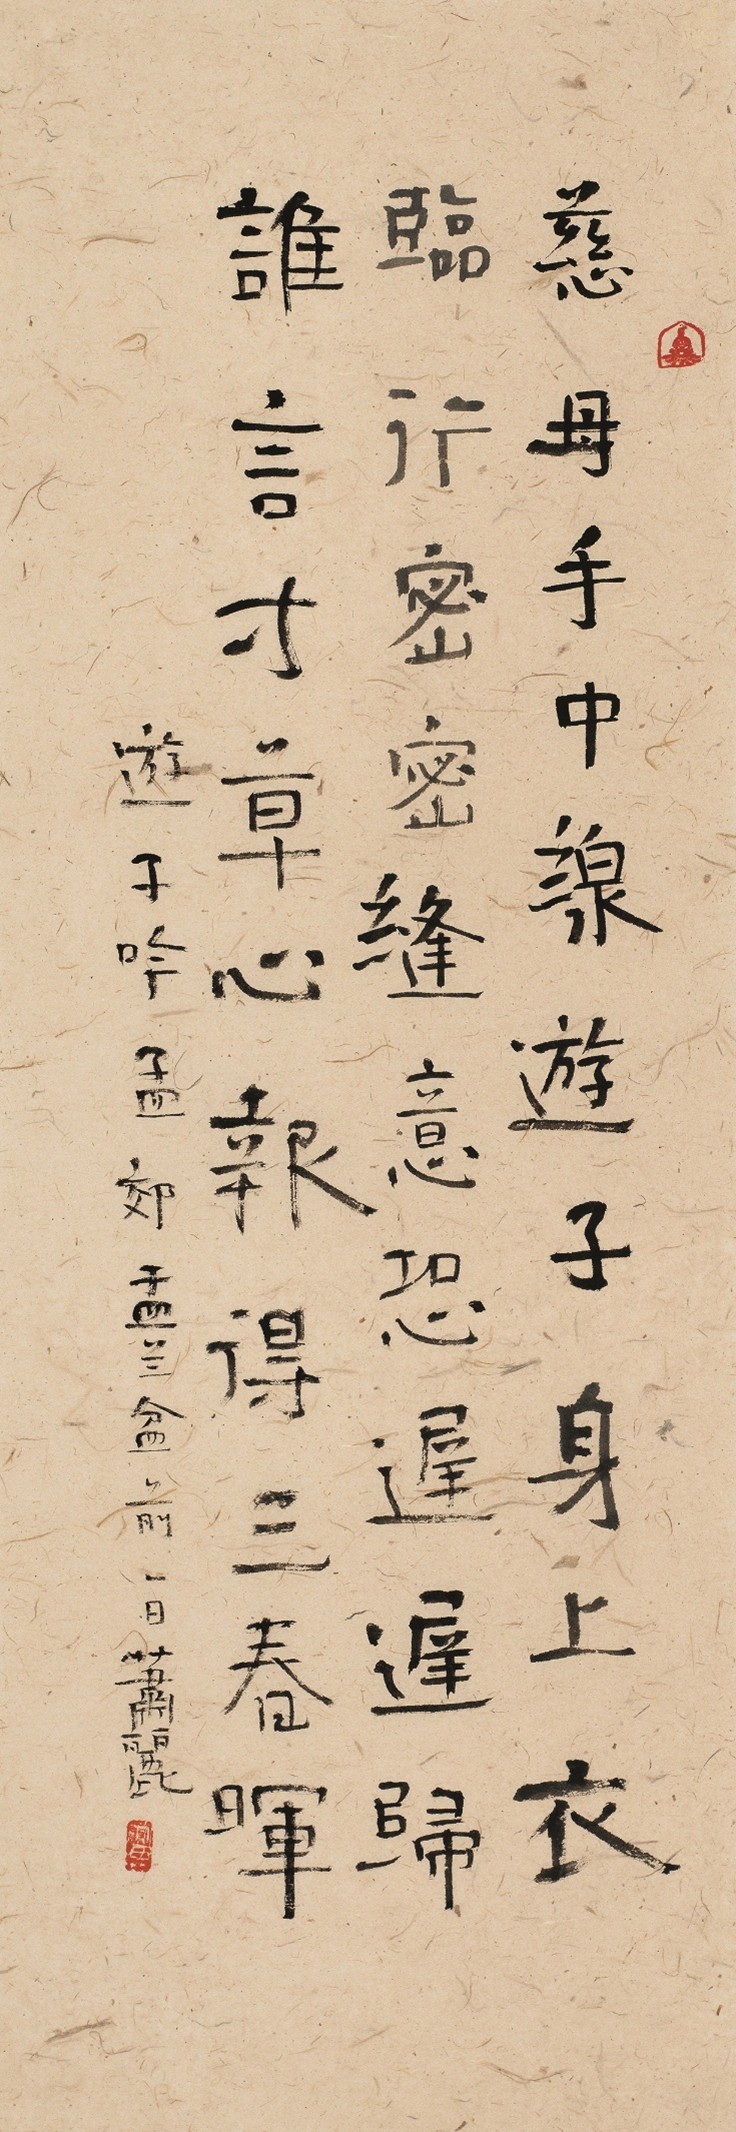 慈母手中線遊子身上衣
臨行密密縫意恐遲遲歸
誰言寸草心報得三春暉
遊子吟孟郊盂兰盆前一日蕭麗